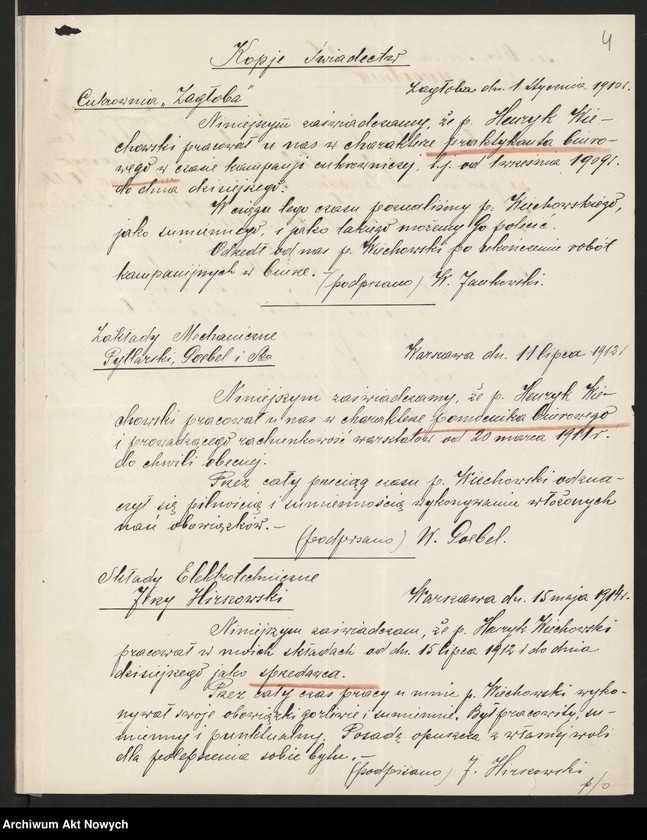 4
Kopje świadectw
Cukrownia "Zagłoba"
Zagłoba dn. 1. Stycznia 1910 r.
Niniejszym zaświadczamy, że p. Henryk Wie-
chowski pracował u nas w charakterze praktykanta biuro-
wego w czasie kampanji cukrowniczej, t.j. od 1 września 1909 r.
do dnia dzisiejszego.
W ciągu tego czasu poznaliśmy p. Wiechowskiego,
jako sumiennego, i jako takiego możemy Go polecić.
Odszedł od nas p. Wiechowski po ukończeniu robót
kampanijnych w biurze. – (podpisano) W. Jankowski.
Zakłady Mechaniczne
Pytlarski, Goebel i Ska
Warszawa dn. 11 lipca 1912 r
Niniejszym zaświadczamy, że p. Henryk Wie-
chowski pracował u nas w charakterze pomocnika biurowego
i prowadzącego rachunkowość warsztatów od 20 marca 1911 r.
do chwili obecnej.
Przez cały przeciąg czasu p. Wiechowski odzna-
czył się pilnością i sumiennością wykonywania włożonych
nań obowiązków. –
(podpisano) W. Goebel.
Składy Elektrotechniczne
Jerzy Hirszowski
Warszawa dn. 15 maja 1914 r.
Niniejszym zaświadczam, że p. Henryk Wiechowski
pracował w moich składach od dn. 15 lipca 1912 r do dnia
dzisiejszego jako sprzedawca.
Przez cały czas pracy u mnie p. Wiechowski wyko-
nywał swoje obowiązki gorliwie i sumiennie. Był pracowity, su-
mienny i punktualny. Posadę opuszcza z własnej woli
dla polepszenia sobie bytu. –
(podpisano) J. Hirszowski
p/o
Archiwum Akt Nowych